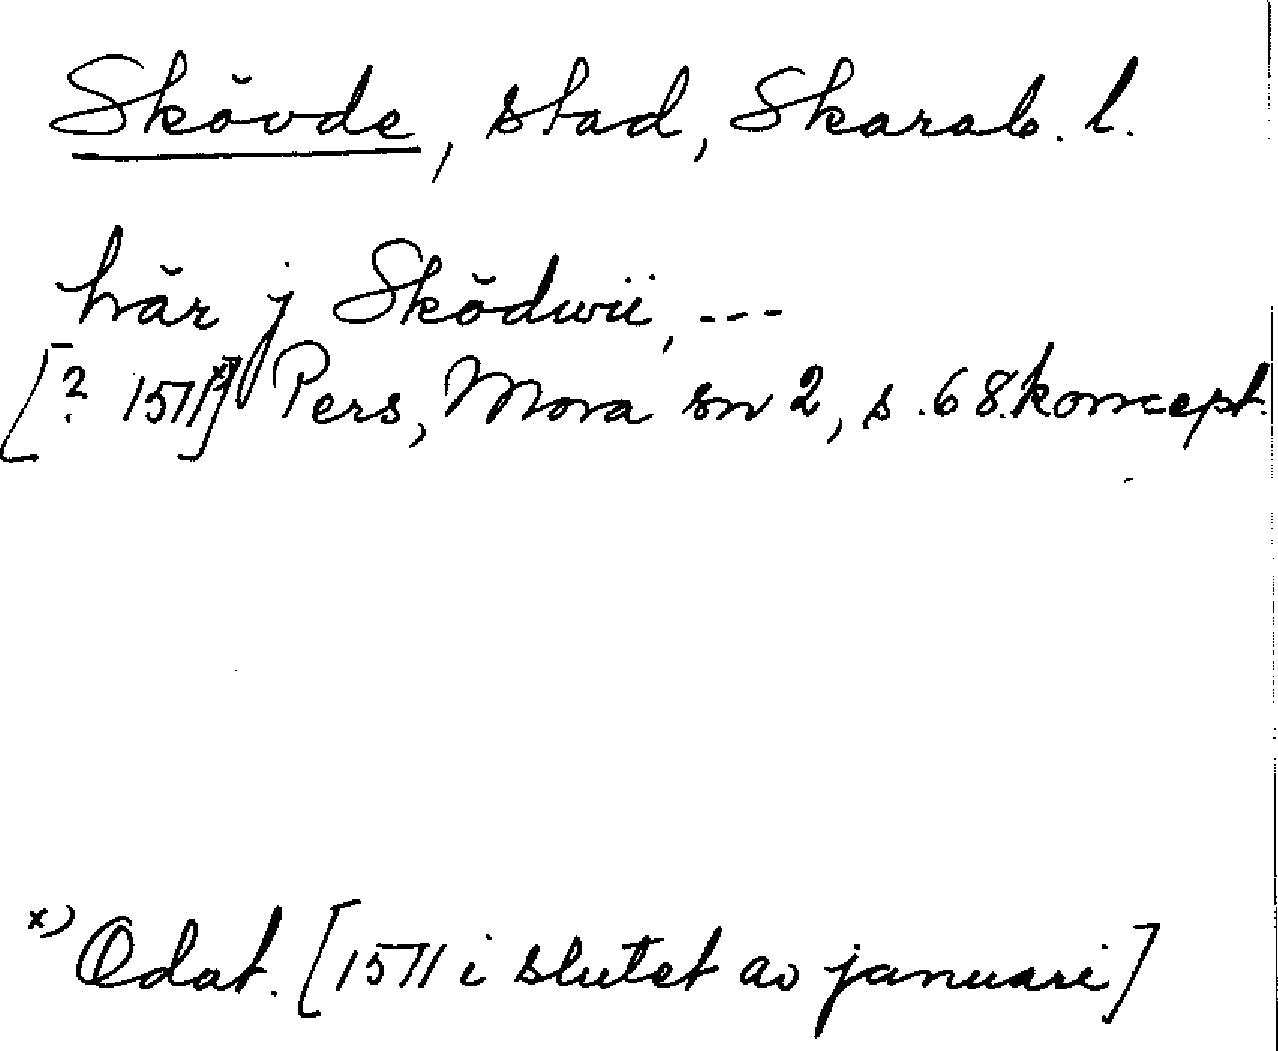 Skövde, stad, Skarab. l.
här j Skŏdwii, ---
[? 1571]x) Pers, Mora sn 2, s. 68. koncept.
x) Odat. [1571 i slutet av januari]